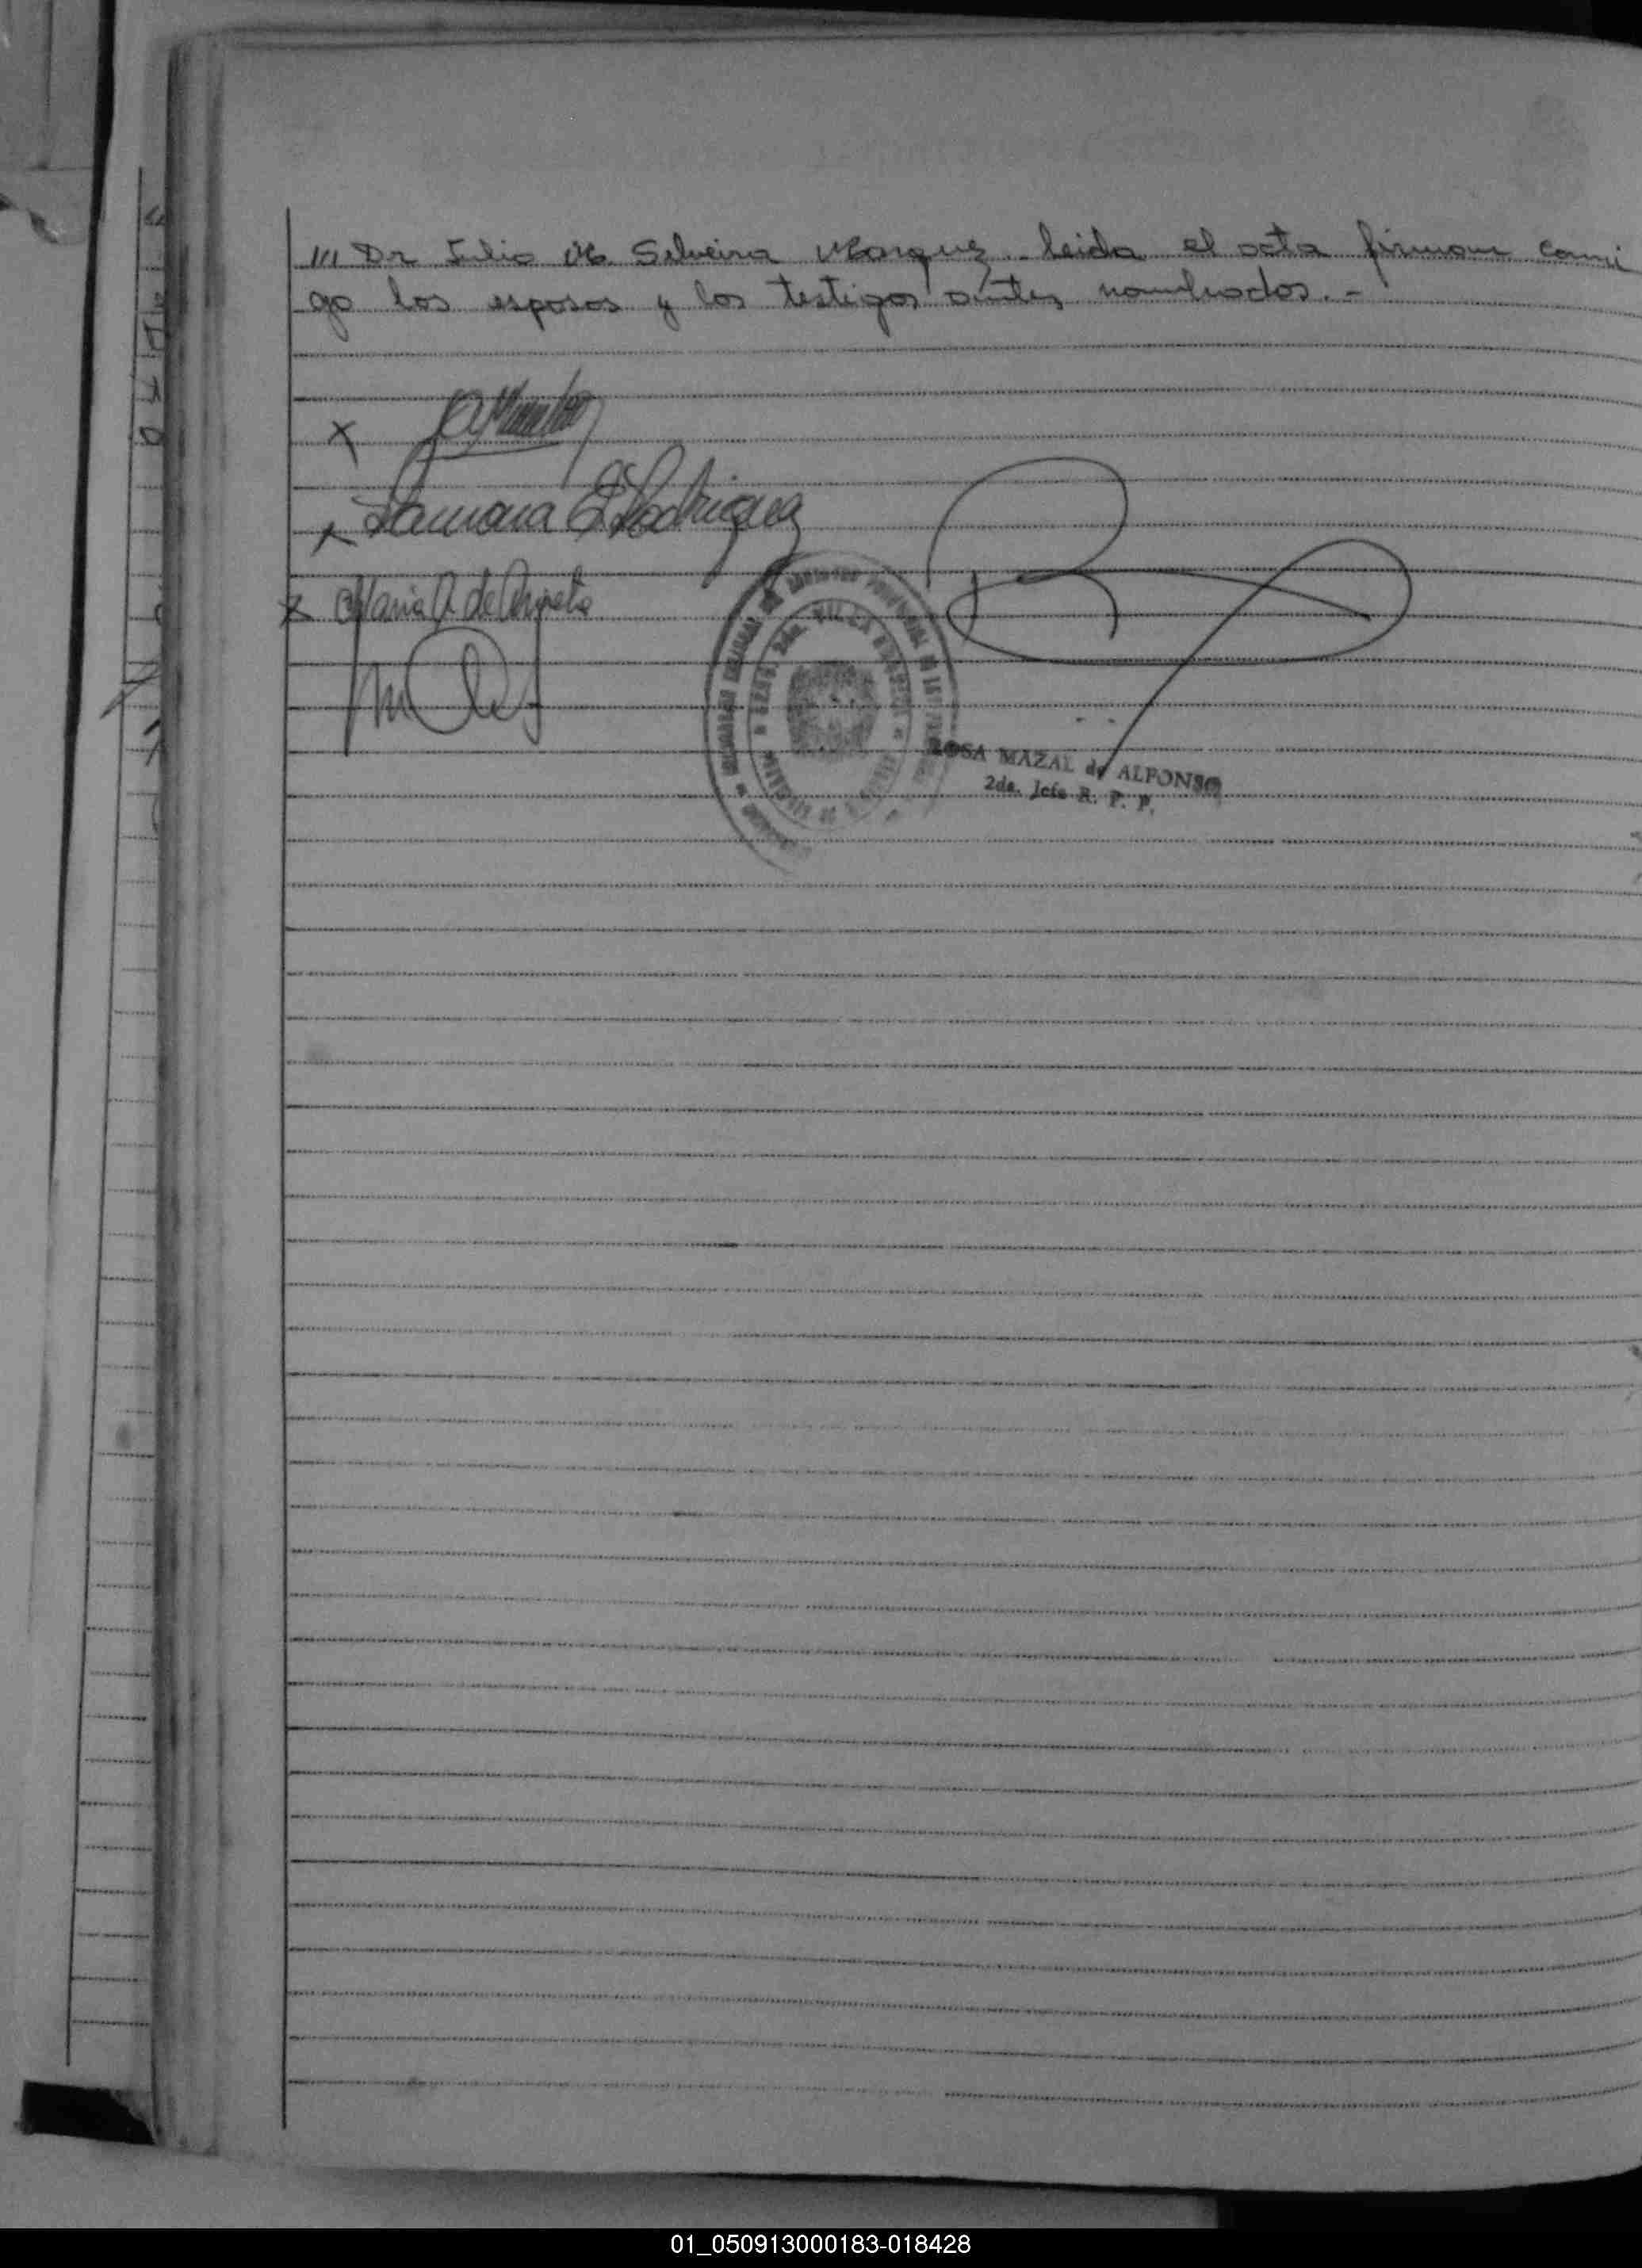 /// Dr Julio M. Silveira Marquez.- leida el acta firman conmi
go los esposos y los testigos antes nombrados.-
x
x Ramona E Rodriguez
x Maria A. de
VILLA
ROSA MAZAL de ALFONSO
2da. Jefe R. P. P.
01_050913000183-018428